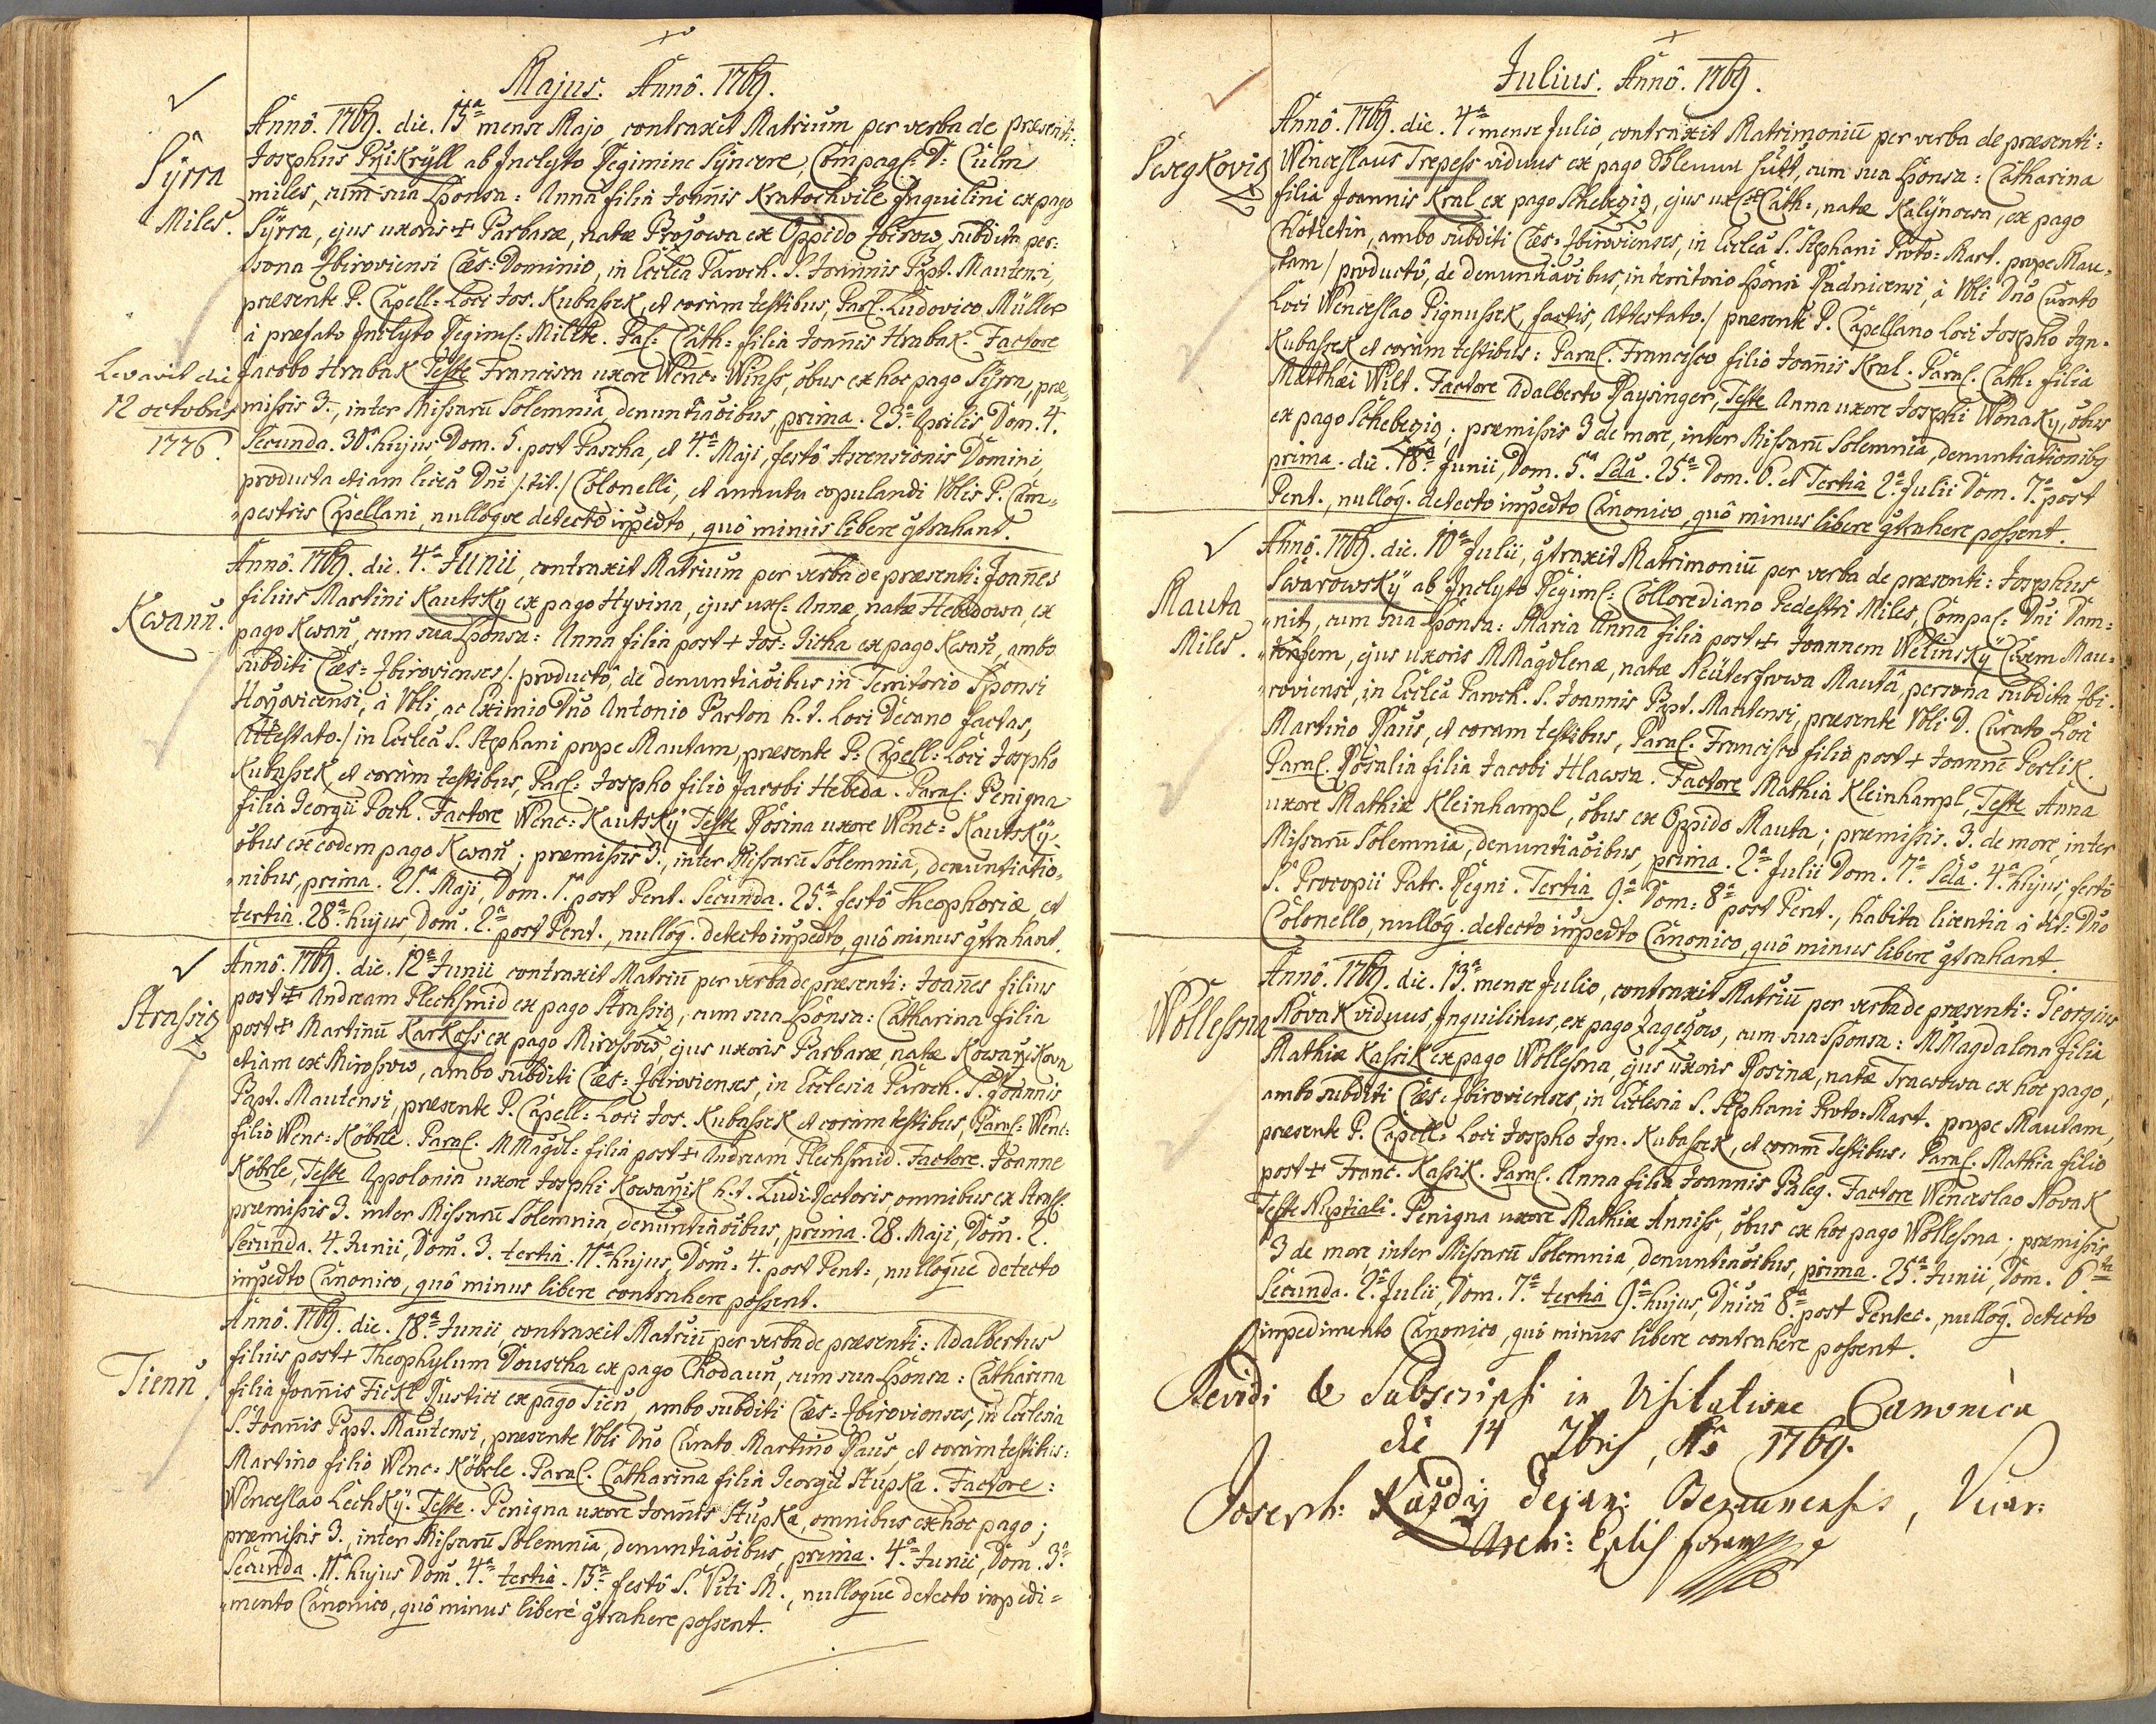 Majus. Annô. 1769.
Annô. 1769. die. 15ª mense Majo contraxit Matrium per verba de præsenti:
Sÿrra
Josephus Przikrÿll ab Inclyto Regimine Sÿncere, Compagſ: D: Culm
Miles.
miles, cum sua Sponsa: Anna filia Joañis Kratochvile Inquilini ex pago
Sÿrra, ejus uxoris ✝ Barbaræ, natæ Brojowa ex Oppido Zbirow, subdita per:
sona Zbiroviensi Cæs: Dominio, in Ecclea Paroch. S. Joannis Bapt. Mautensi,
præsente P. Capell: Loci Jos. Kubassek, et coràm testibus, Parſ. Ludovico Müller
à præfato Inclyto Regimſ: Milite. Paſ: Cath: filia Joañis Hrabak. Factore
Levavit die
12 octobris
1776.
Jacobo Hrabak Teste Francisca uxore Wenc: Winss, obus ex hoc pago Sÿrra, præ„
missis 3., inter Missarũ Solemnia, denuntiaõibus, prima. 23ª Aprilis Dom. 4.
Secunda. 30ª hujus, Dom. 5. post Pascha, et 4ª Maji, festô Ascensionis Domini,
producta etiam liceã Dni /:tit./ Colonelli, et annutu copulandi Vblis P. Cam„
„pestris Capellani, nullôque detectô impedto, quô minùs libere gtrahant.
Annô. 1769. die. 4ª Junii, contraxit Matrium per verba de præsenti: Joañes
Kwann.
filius Martini Kautskÿ ex pago Hyvina, ejus uxſ: Annæ, natæ Hebedowa, ex
pago Kwañ, cum sua Sponsa: Anna filia post ✝ Jos: Jicha ex pago Kwañ, ambo
subditi Cæs: Zbirovienses /. productô, de denuntiaõibus in Territorio Sponsi
Hoÿovicensi, à Vbli, ac Eximio Dnõ Antonio Barton h. t. Loci Decano factas,
Attestato./ in Ecclea S. Stephani prope Mautam, præsente P: Capell: Loci Josepho
Kubassek, et coràm testibus, Parſ: Josepho filio Jacobi Hebeda. Paraſ. Benigna
filia Georgii Poch. Factore Wenc: Kautskÿ Teste Rosina uxore Wenc: Kautskÿ,
obus ex eôdem pago Kwañ; præmissis 3., inter Missarũ Solemnia, denuntiatio„
„nibus, prima. 21ª Maji, Dom. 1ª post Pent. Secunda. 25ª festô Theophoriæ et
tertia. 28ª hujus, Dom̃. 2ª post Pent., nullôq. detecto impedto, quô minus gtrahant.
Annô. 1769. die. 12ª Junii contraxit Matriũ per verba de præsenti: Joañes filius
Strassig
post ✝ Andream Plechsmid ex pago Strassig, cum sua Sponsa: Catharina filia
post ✝ Martinũ Karkoss ex pago Mirossow, ejus uxoris Barbaræ, natæ Kowarzikowa
etiam ex Mirossow, ambo subditi Cæs: Zbirovienses, in Ecclesia Paroch. S. Joannis
Bapt. Mautensi, præsente P. Capell: Loci Jos. Kubassek, et coràm testibus, Paraſ: Wenc:
filio Wenc: Köbrle. Paraſ. MMagdl: filia post ✝ Andream Plechsmid. Factore. Joanne
Köbrle, Teste Appolonia uxore Josephi Kowarzik h. t. Ludi Rectoris, omnibus ex Strassſ:
præmissis 3. inter Missarũ Solemnia, denuntiaõibus, prima. 28. Maji, Dom̃. 2.
Secunda. 4. Junii, Dom̃. 3. tertia. 11ª hujus, Dom̃: 4. post Pent:, nullôque detecto
impedto Canonico, quô minus libere contrahere possent.
Annô. 1769. die. 18ª Junii, contraxit Matriũ per verba de præsenti: Adalbertus
Tienñ.
filius post ✝ Theophylum Douscha ex pago Chodaun, cum sua Sponsa: Catharina
filia Joañis Fickl Rustici ex pago Tieñ, ambo subditi Cæs: Zbirovienses, in Ecclesia
S. Joañis Bapt. Mautensi, præsente Vbli Dnõ Curato Martino Raus, et coràm testibus:
Martino filio Wenc: Köbrle. Paraſ. Catharina filia Georgii Stupka. Factore:
Wenceslao Lechkÿ. Teste. Benigna uxore Joañis Stupka, omnibus ex hoc pago;
præmissis 3., inter Missarũ Solemnia, denuntiaõibus, prima. 4ª Junii, Dom. 3ª
Secunda. 11ª hujus Dom̃. 4ª tertia. 15ª festô S. Viti M., nullôque detecto impedi=
„mento Canonico, quô minus liberè gtrahere possent.
Julius. Annô. 1769.
Annô. 1769. die. 4ª mense Julio, contraxit Matrimoniũ per verba de præsenti:
Wenceslaus Trepess viduus ex pago Obleuw Hutt, cum sua Sponsa: Catharina
filia Joannis Kral ex pago Schebezig, ejus uxſ: Cath:, natæ Kalÿnowa, ex pago
Chotietin, ambo subditi Cæs: Zbirovienses, in Ecclea S. Stephani Proto: Mart. prope Mau„
„tam / productô, de denuntiaõibus, in territorio Sponsi Radnicensi, à Vbli Dnõ Curato
Loci Wenceslao Pignussek, factis, Attestato./ præsente P. Capellano Loci Josepho Ign.
Kubassek et coràm testibus: Paraſ. Francisco filio Joañis Kral. Paraſ. Cath: filia
Matthæi Wilt. Factore Adalberto Raysinger, Teste Anna uxore Josephi Wonakÿ, obus
ex pago Schebezig; præmissis 3 de more, inter Missarũ Solemnia, denuntiationibq
prima. die. 18ª Junii, Dom. 5ª Sclã. 25ª Dom. 6. et Tertia 2ª Julii Dom. 7ª post
Pent., nullôq. detecto impedto Canonico, quô minus libere gtrahere possent.
Annô. 1769. die. 10ª Julii, gtraxit Matrimoniũ per verba de præsenti: Josephus
Mauta
Miles.
Swarowskÿ ab Inclyto Regimſ: Collorediano Pedestri Miles, Compaſ: Dni Dam:
„nitz, cum sua Sponsa: Maria Anna filia post ✝ Joannem Welinskÿ Civem Mau„
„tensem, ejus uxoris MMagdlenæ, natæ Reüterssowa Mautâ, persona subdita Zbi:
roviensi, in Ecclea Paroch. S. Joannis Bapt. Mautensi, præsente Vbli D. Curato Loci
Martino Raus, et coram testibus, Paraſ. Francisco filio post ✝ Joannẽ Perlik.
Paraſ. Rosalia filia Jacobi Hlawsa. Factore Mathia Kleinhampl, Teste Anna
uxore Mathiæ Kleinhampl, obus ex Oppido Mauta; præmissis. 3. de more, inter
Missarũ Solemnia, denuntiaõibus, prima. 2ª Julii Dom. 7ª Sclã. 4ª hujus, festô
S. Procopii Patr. Regni. Tertia 9ª Dom: 8ª post Pent., habita licentia à tit: Dnõ
Colonello, nullôq. detecto impedto Canonico, quô minus libere gtrahant.
Annô. 1769. die. 13ª mense Julio, contraxit Matriũ per verba de præsenti: Georgius
Wollessna
Novak viduus, Inquilinus, ex pago Zagezow, cum sua Sponsa: MMagdalena filia
Mathiæ Kassik ex pago Wollessna, ejus uxoris Rosinæ, natæ Trawowa ex hoc pago,
ambo subditi Cæs: Zbirovienses, in Ecclesia S. Stephani Proto: Mart. prope Mautam,
præsente P. Capell: Loci Josepho Ign. Kubassek, et coràm Testibus: Paraſ. Mathia filio
post ✝ Franc. Kassik. Paraſ. Anna filia Joannis Paleg. Factore Wenceslao Novak
Teste Nuptiali. Benigna uxore Mathiæ Anniss, obus ex hoc pago Wollessna. præmissis
3 de more, inter Missarũ Solemnia, denuntiaõibus, prima. 25ª Junii, Dom. 6ta
Secunda. 2ª Julii, Dom. 7ª tertia 9ª hujus, Dnicâ 8ª post Pentec., nullôq. detecto
impedimento Canonico, quô minus libere contrahere possent.
Revidi & Subscripsi in Visitatione Canonica
die 14 7bris, Aô 1769.
Joseph: Kazdÿ Decan: Beraunensis, Vicar:
Arch: Eplis foran